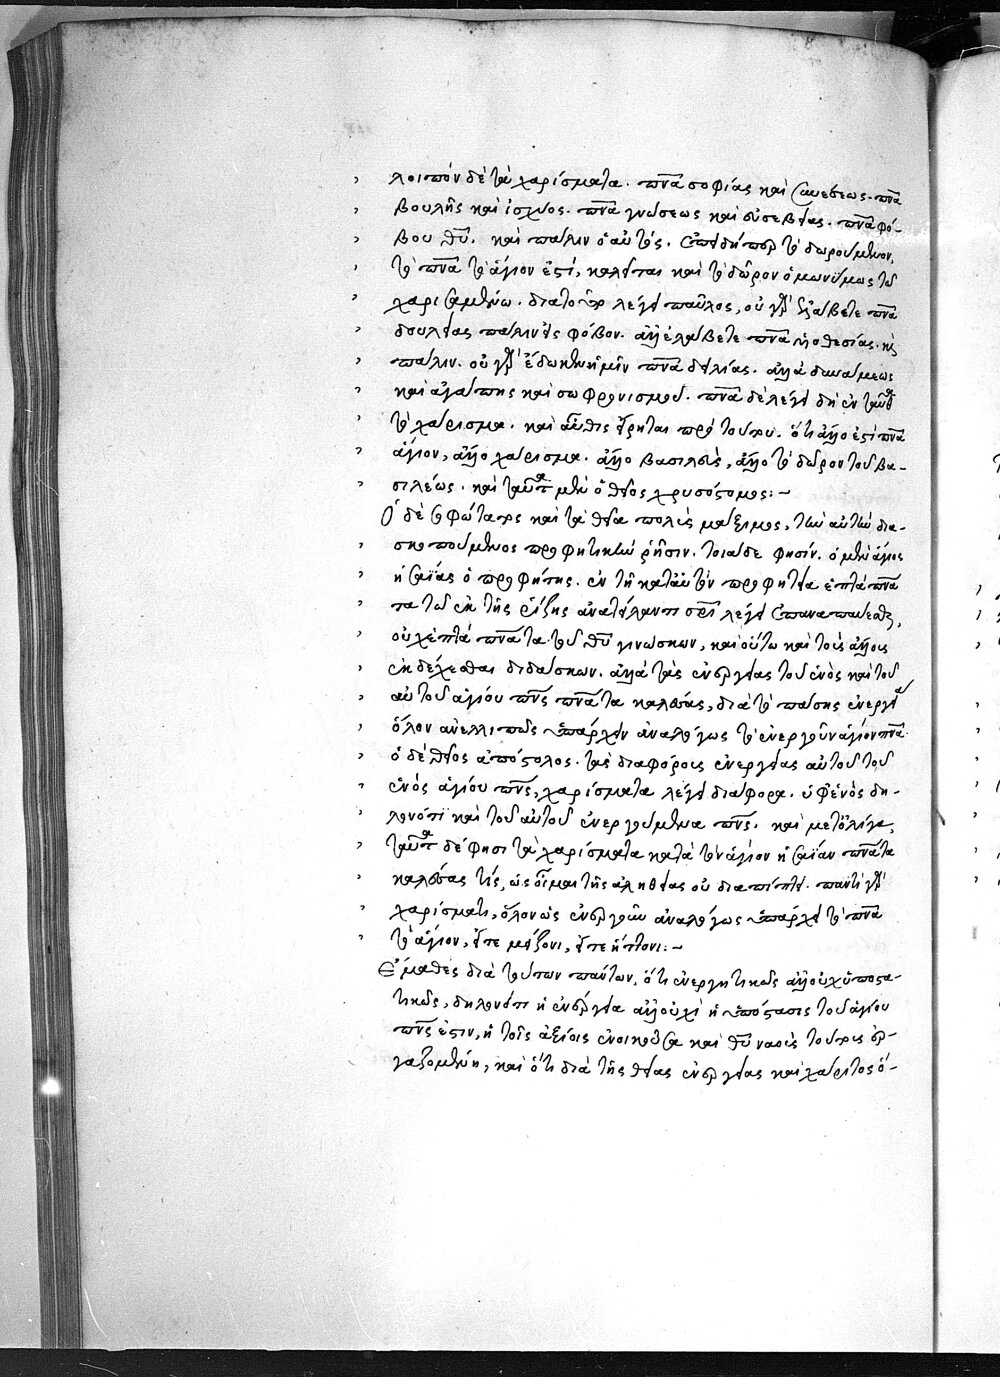 λοιπὸν δὲ τὰ χαρίσματα. πνα σοφίας καὶ συνέσεως. πνα
βουλῆς καὶ ἰσχύος. πνα γνώσεως καὶ εὐσεβείας. πνα φό-
βου θυ. καὶ πάλιν ὁ αὐτός. ἐπειδήπερ τὸ δωρούμενον,
τὸ πνα τὸ ἅγιον ἐστί, καλεῖται καὶ τὸ δῶρον ὁμωνύμως τῷ
χαρισαμένῳ. διατοῦτο λέγει παῦλος, οὐ γὰρ ἐλάβετε πνα
δουλείας πάλιν εἰς φόβον. ἀλλ' ἐλάβετε πνα υἱοθεσίας. καὶ
πάλιν. οὐ γὰρ ἔδωκεν ἡμῖν πνα δειλίας. ἀλλὰ δυνάμεως
καὶ ἀγάπης καὶ σωφρονισμοῦ. πνα δὲ λέγει δὴ ἐνταῦθα
τὸ χάρισμα. καὶ αὖθις εἴρηται πρὸ τούτου. ὅτι ἄλλο ἐστὶ πνα
ἅγιον, ἄλλο χάρισμα. ἄλλο βασιλεύς, ἄλλο τὸ δῶρον τοῦ βα-
σιλέως. καὶ ταῦτα μὲν ὁ θεῖος χρυσόστομος:~
Ὁ δὲ φώτατος καὶ τὰ θεῖα πολὺς μάξιμος, τὴν αὐτὴν δια-
σκοπούμενος προφητικὴν ῥῆσιν. τοιάδε φησίν. ὁ μὲν ἅγιος
ἡσαΐας ὁ προφήτης. ἐν τῇ κατ' αὐτὸν προφητείᾳ ἑπτὰ πνα
τα τῷ ἐκ τῆς ῥίζης ἀνατείλαντι σρι λέγει ἐπαναπαύεσθαι,
οὐχ ἑπτὰ πνατα τοῦ θυ γινώσκων, καὶ οὕτω καὶ τοὺς ἄλλους
ἐκδέχεσθαι διδάσκων. ἀλλὰ τὰς ἐνεργείας τοῦ ἑνὸς καὶ τοῦ
αὐτοῦ ἁγίου πνς πνατα καλέσας, διὰ τὸ πάσης ἐνεργεία
ὅλον ἀνελλιπῶς ὑπάρχειν ἀναλόγως τὸ ἐνεργοῦν ἅγιον πνα.
ὁ δὲ θεῖος ἀπόστολος. τὰς διαφόρους ἐνεργείας αὐτοῦ τοῦ
ἑνὸς ἁγίου πνς, χαρίσματα λέγει διάφορα. ὑφ' ἑνὸς δη-
λονότι καὶ τοῦ αὐτοῦ ἐνεργούμενα πνς. καὶ μετ' ὀλίγα,
ταῦτα δέ φησι τὰ χαρίσματα κατὰ τὸν ἅγιον ἡσαΐαν πνατα
καλέσας τίς, ὡς οἶμαι τῆς ἀληθείας οὐ διαπίπτει. παντὶ γὰρ
χαρίσματι, ὅλον ὡς ἐνεργοῦν ἀναλόγως ὑπάρχει τὸ πνα
τὸ ἅγιον, εἴτε μείζονι, εἴτε ἥττονι:~
Ἔμαθες διὰ τούτων πάντων, ὅτι ἐνεργητικῶς ἀλλ' οὐχ ὑποστα-
τικῶς, δηλονότι ἡ ἐνέργεια ἀλλ' οὐχὶ ἡ ὑπόστασις τοῦ ἁγίου
πνς ἐστιν, ἡ τοῖς ἀξίοις ἐνοικοῦσα καὶ θυ ναοὺς τούτους ἐρ-
γαζομένη, καὶ ὅτι διὰ τῆς θείας ἐνεργείας καὶ χάριτος ὁ-